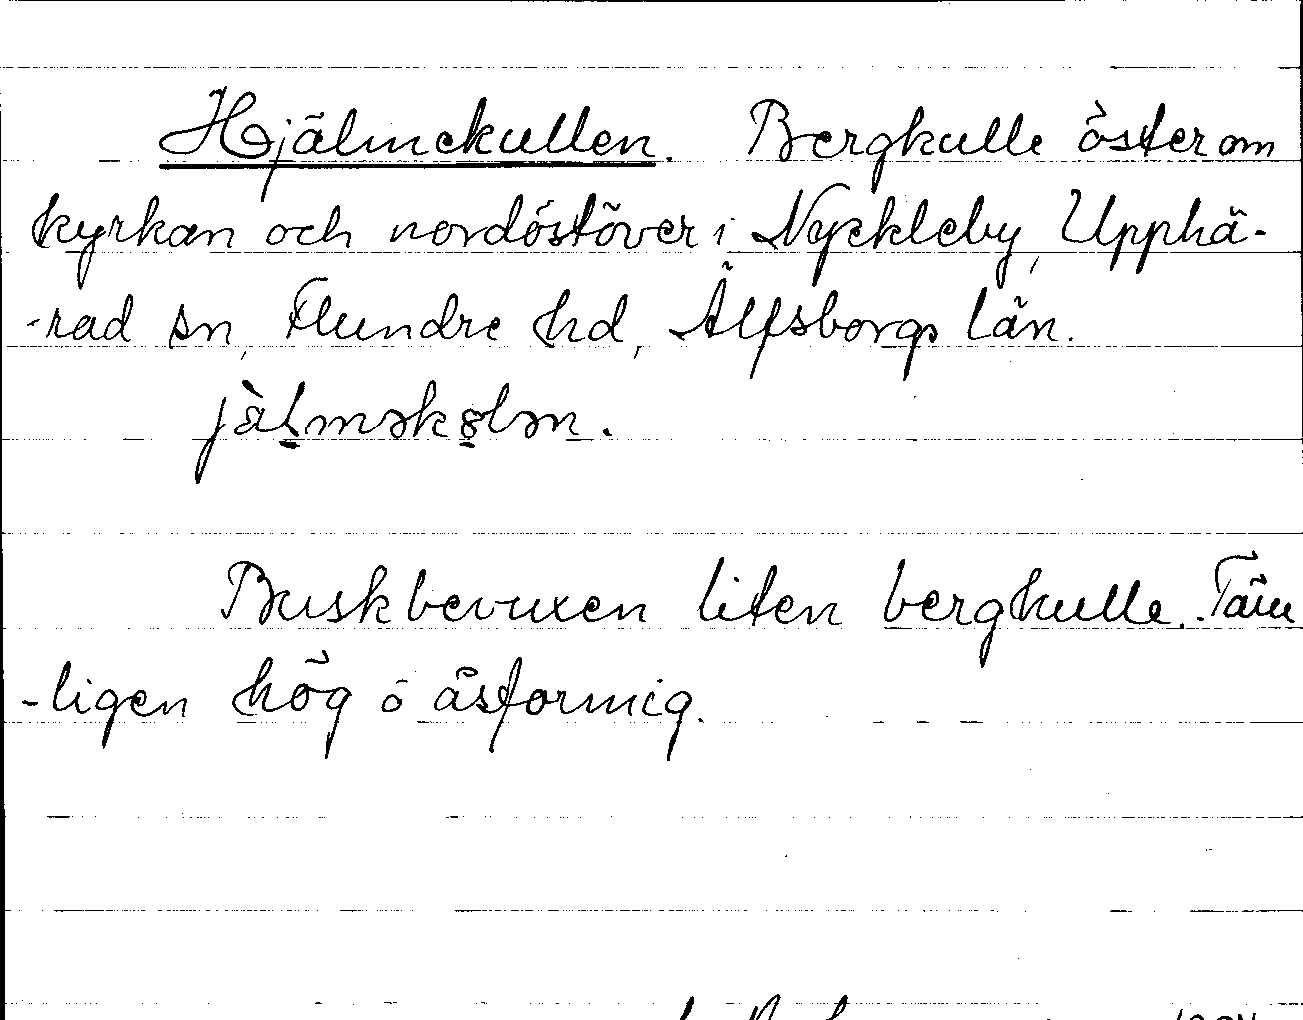 Hjälmekullen. Bergkulle öster om
kyrkan och nordöstöver i Nyckleby, Upphä-
-rad sn, Flundre hd, Älfsborgs län.
jàlməkələn.
Buskbevuxen liten bergkulle. Täm
-ligen hög o åsformig.